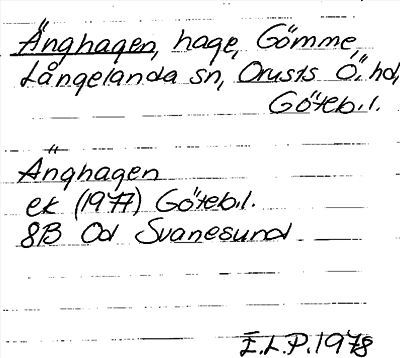 Änghagen, hage, Gömme,
Långelanda sn, Orusts Ö. hd,
Göteb. l.
Änghagen
ek (1977) Göteb.l.
8B Od Svanesund
I.L.P. 1978